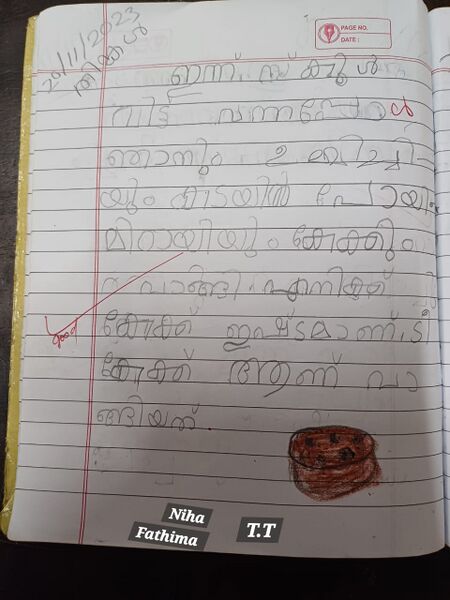 PAGE NO.
DATE :
20/11/2023
തിങ്കൾ
ഇന്ന് സ്കൂൾ
വിട്ട് വന്നപ്പോൾ
ഞാനും ഉമ്മിച്ചി-
യും കടയിൽ പോയി.
മിഠായിയും കേക്കും
വാങ്ങി. എനിക്ക്
കേക്ക് ഇഷ്ടമാണ്. ടീ
കേക്ക് ആണ് വാ
ങ്ങിയത്.
good
Niha
Fathima
T.T